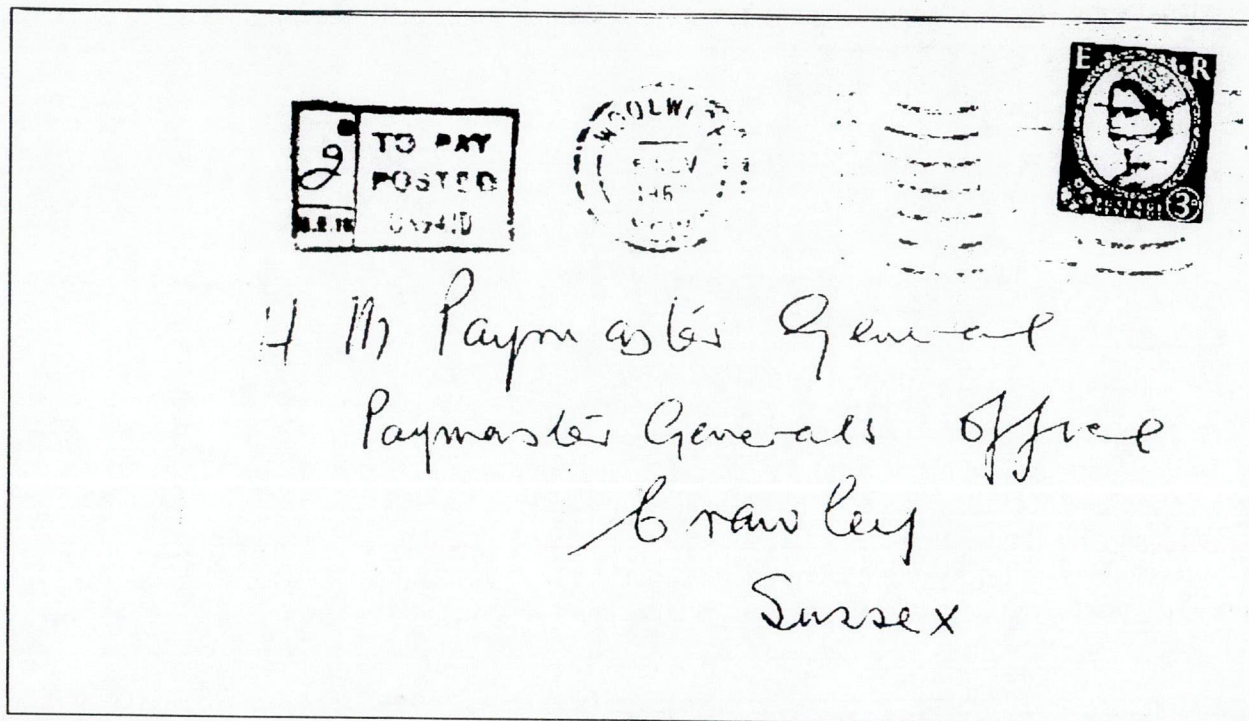 E R
3
TO PAY
POSTED
WOOLW
NOV
196
H M Paymaster General
Paymaster Generals Office
Crawley
Sussex